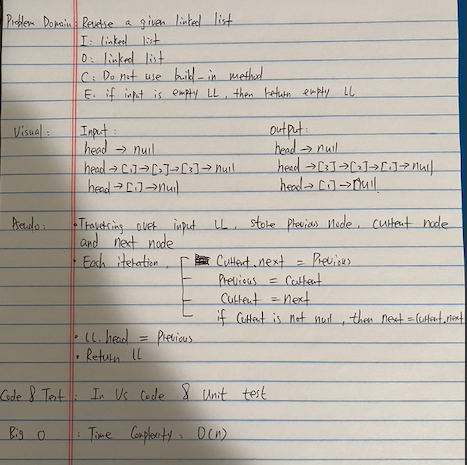 Problem Domain: Reverse a given linked list
I: linked list
O: linked list
C: Do not use build-in method
E: if input is empty LL, then return empty LL
Visual: Input: output:
head → null head → null
head → [1] → [2] → [3] → null head → [3] → [2] → [1] → null
head → [1] → null head → [1] → null
Pseudo: • Traversing over input LL, store previous node, current node
and next node
• Each iteration, Current.next = Previous
Previous = Current
Current = next
if Current is not null, then next = Current.next
• LL.head = Previous
• Return LL
Code & Test: In Vs code & Unit test
Big O : Time Complexity: O(n)